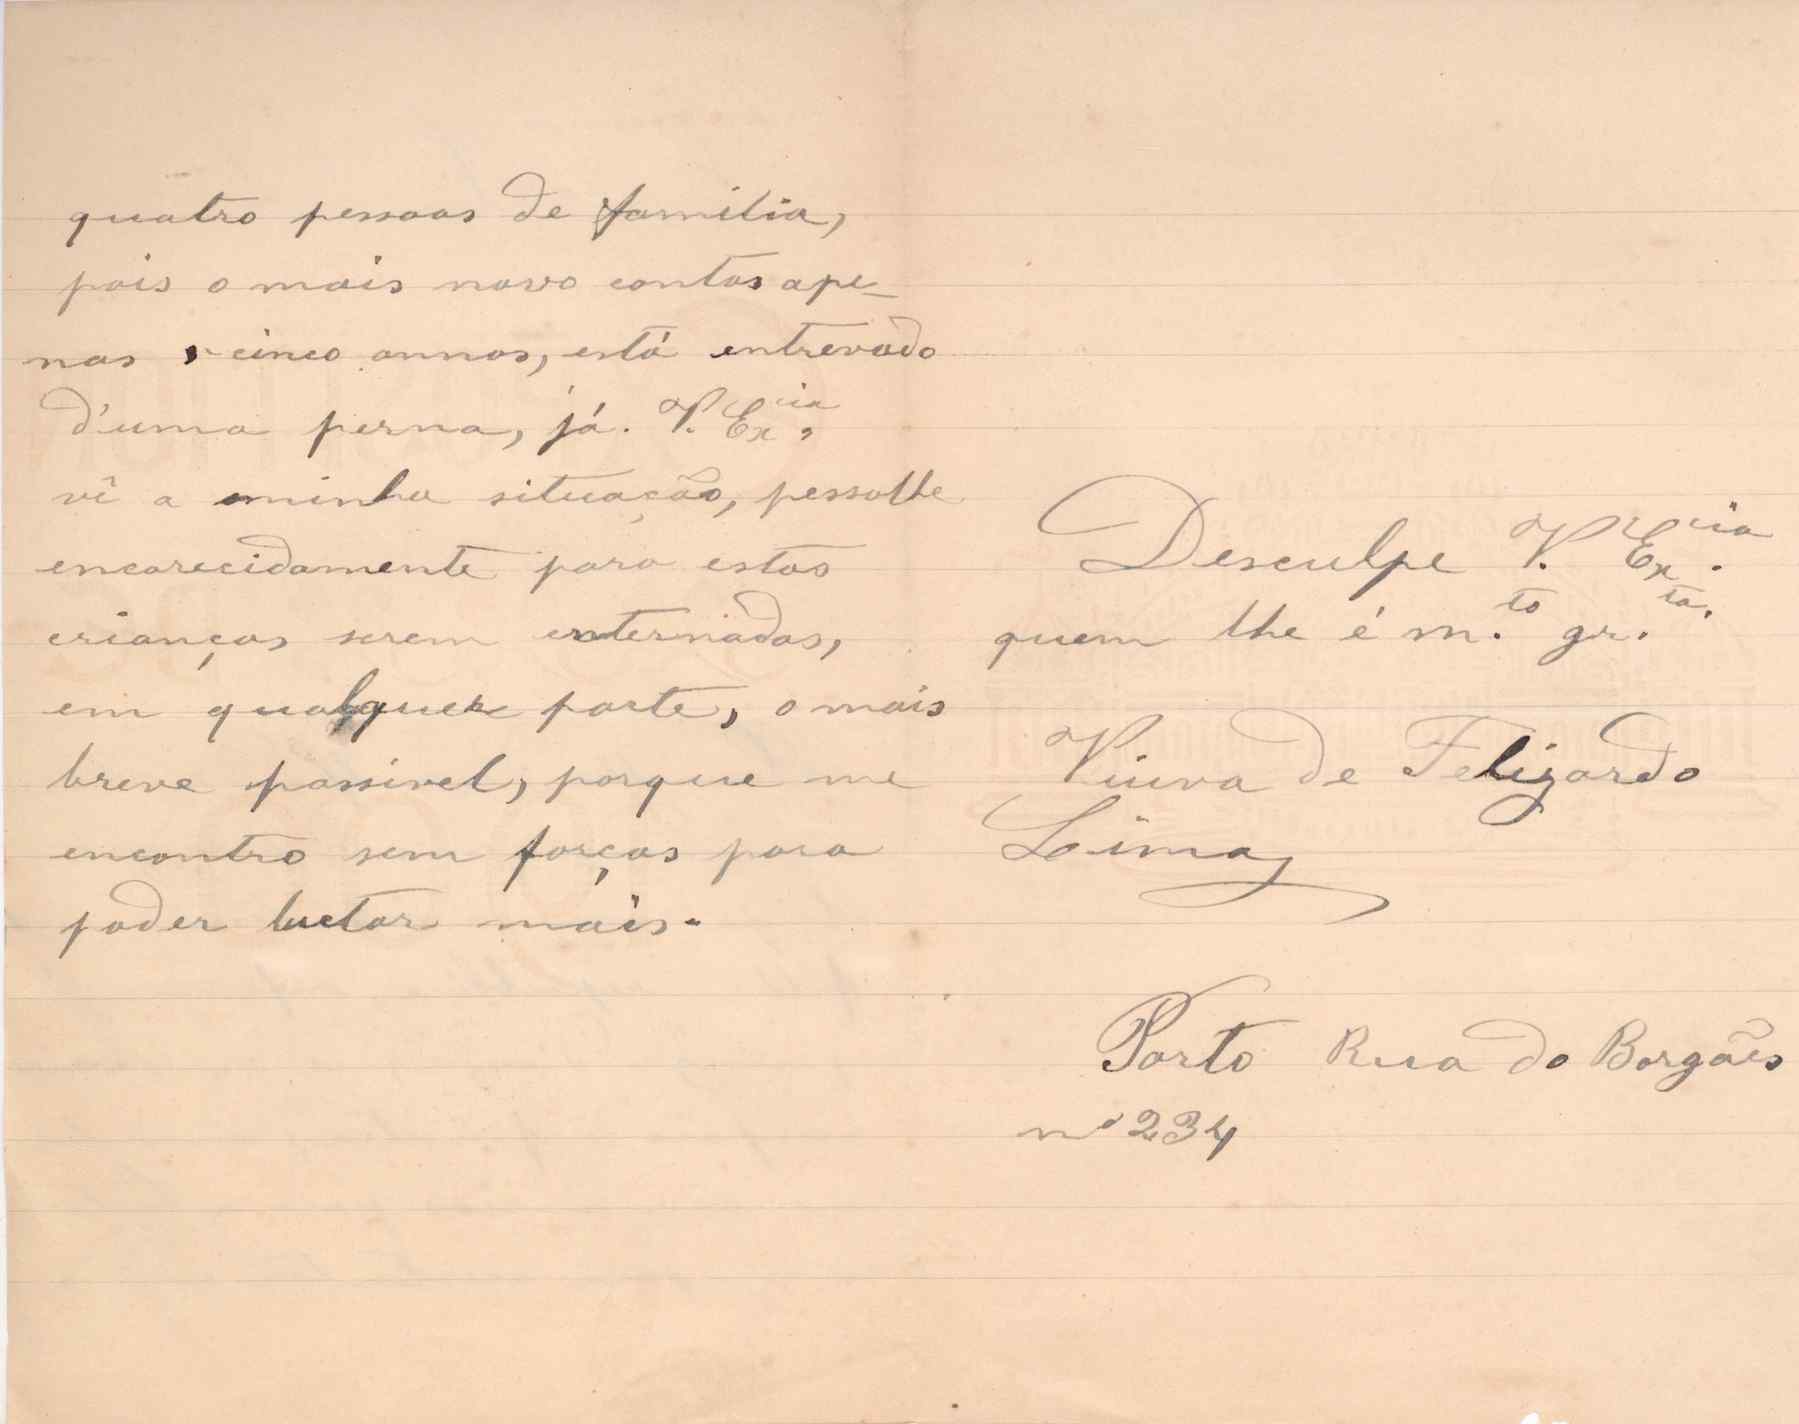 quatro pessoas de familia,
pois o mais novo contas ape-
nas cinco annos, está entrevado
d'uma perna, já. V. Ex.cia
vê a minha situação, pessolhe
encarecidamente para estas
crianças serem enternadas,
em qualquer parte, o mais
breve passivel, porque me
encontro sem forças para
poder luctar mais.
Desculpe V. Ex.cia
quem lhe é m.to gr.ta
Viuva de Felizardo
Lima
Porto Rua do Borgães
nº 234